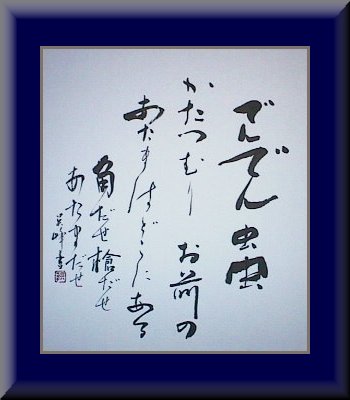 でんでん虫虫
かたつむり お前の
あたまはどこにある
角だせ槍だせ
あたまだせ